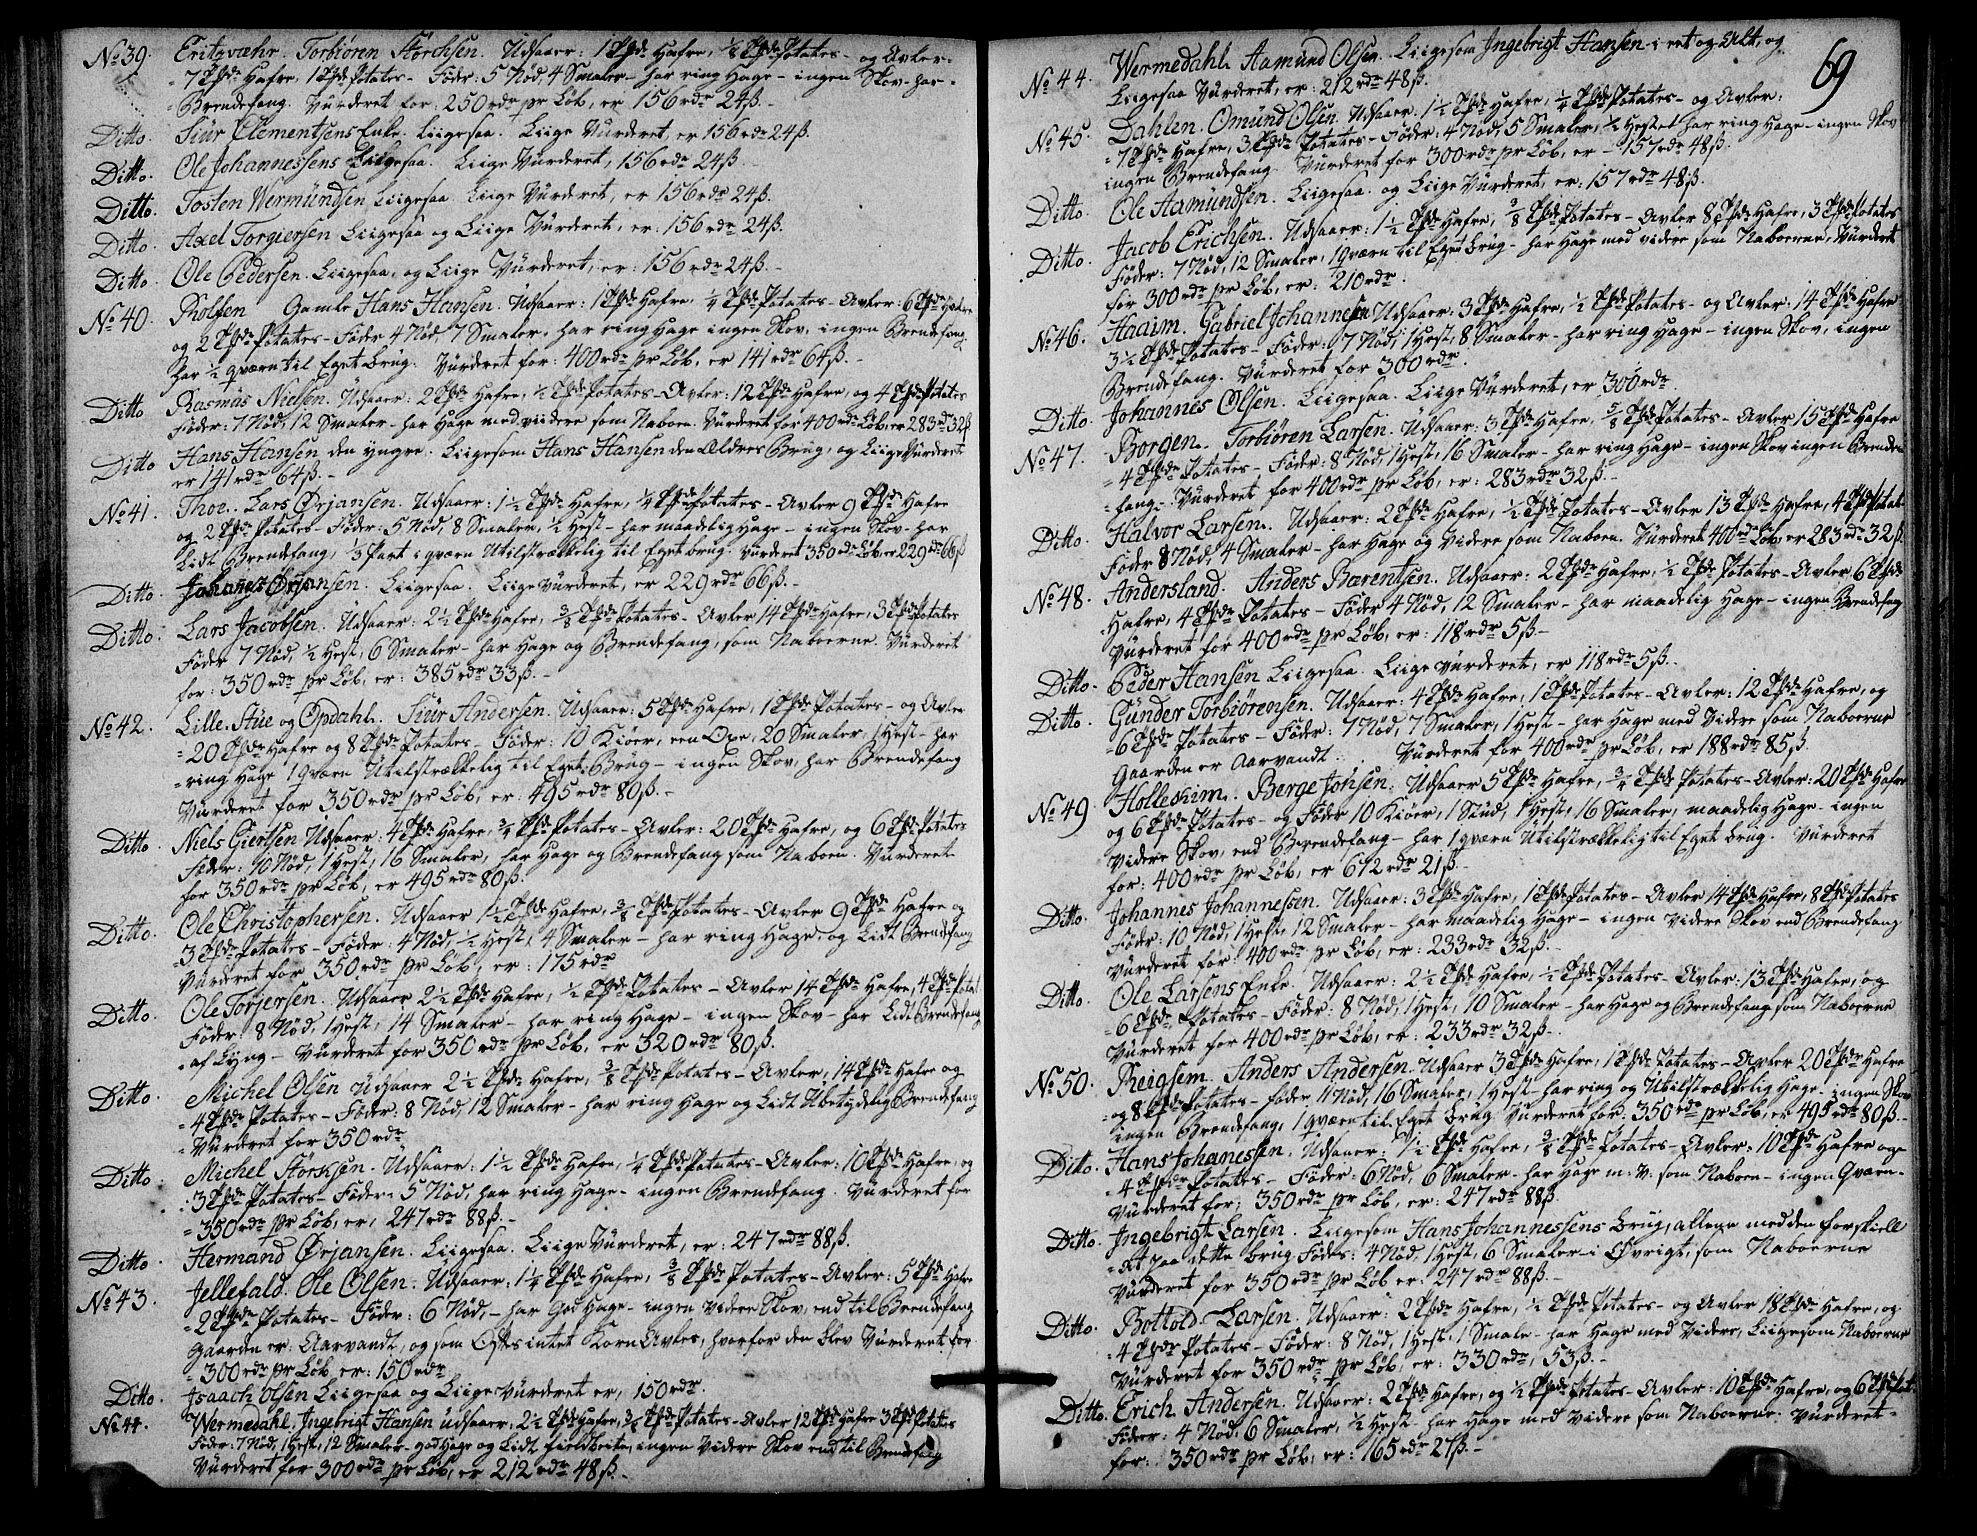 No 39. Fritzvæhr. Torbiören Störchsen. Udsaaer: 1 Tnde Hafre, 1/4 Tnde Potates - og Avler
7 Tnde Hafre, 1 Tnde Potates - Föder: 5 Nöd, 4 Smaler - har ring Hage - ingen Skov - har
Brendefang. Vurderet for: 250 rdr pr Löb, er 156 rdr 24 ß. -
Ditto. Siur Clementsens Enke. Liigesaa. Liige Vurderet, er 156 rdr 24 ß.
Ditto. Ole Johannessens Liigesaa. Liige Vurderet, 156 rdr 24 ß. -
Ditto. Tosten Wermundsen Liigesaa. Liige Vurderet, er 156 rdr 24 ß.
Ditto. Axel Torgiersen Liigesaa og Liige Vurderet, er: 156 rdr 24 ß.
Ditto. Ole Pedersen. Liigesaa, og Liige Vurderet, er: 156 rdr 24 ß. -
No 40. Rolfsn Gamle Hans Hansen. Udsaaer: 1 Tnde Hafre, 1/4 Tnde Potates - Avler: 6 Tnde Hafre
og 2 Tnde Potates - Föder 4 Nöd, 7 Smaler, har ring Hage ingen Skov, ingen Brendefang.
har 1/2 qværn til Eget brug. Vurderet for: 400 rdr pr Löb, er 141 rdr 64 ß. -
Ditto Rasmus Nielsen. Udsaaer: 2 Tnde Hafre, 1/2 Tnde Potates - Avler: 12 Tnde Hafre, og 4 Tnde Potates
Föder: 7 Nöd, 12 Smaler - har Hage med videre som Naboen. Vurderet for 400 rdr Löb, er 283 rdr 32 ß
Ditto Hans Hansen den yngre. Liigesom Hans Hansen den Ældres Brug, og Liige Vurderet
er 141 rdr 64 ß. -
No 41. Thor. Lars Örjansen. Udsaaer: 1 1/2 Tnde Hafre, 1/4 Tnde Potates - Avler 9 Tnde Hafre
og 2 Tnde Potates - Föder: 5 Nöd, 8 Smaler, 1/2 Hest - har maadelig Hage - ingen Skov - har
Lidt Brendefang, 1/3 Part i qværn Utilstrækkelig til Eget brug. Vurderet 350 rdr Löb er 229 rdr 66 ß
Ditto. Johanes Örjansen. Liigesaa. Liige Vurderet, er 229 rdr 66 ß. -
Ditto. Lars Jacobsen. Udsaaer: 2 1/2 Tnde Hafre, 3/8 Tnde Potates - Avler 14 Tnde Hafre, 3 Tnde Potates
Föder 7 Nöd, 1/2 Hest, 6 Smaler - har Hage og Brendefang, som Naboerne. Vurderet
for: 350 rdr pr Löb, er: 385 rdr 33 ß. -
No 42. Lille Stue og Opdahl. Siur Andersen. Udsaaer: 5 Tnde Hafre, 1 Tnde Potates - og Avler
20 Tnde Hafre og 8 Tnde Potates - Föder: 10 Kiöer, een Oxe, 20 Smaler, 1 Hest - har
ring Hage 1 qværn Utilstrækkelig til Eget Brug - ingen Skov, har Brendefang
Vurderet for 350 rdr pr Löb, er: 495 rdr 80 ß. -
Ditto. Niels Giertsen Udsaaer: 4 Tnde Hafre, 3/4 Tnde Potates - Avler: 20 Tnde Hafre, og 6 Tnde Potates
Föder: 10 Nöd, 1 Hest, 16 Smaler, har Hage og Brendefang som Naboen. Vurderet
for 350 rdr pr Löb, er 495 rdr 80 ß. -
Ditto. Ole Christophersen. Udsaaer 1 1/2 Tnde Hafre, 3/8 Tnde Potates - Avler 9 Tnde Hafre og
3 Tnde Potates - Föder: 4 Nöd, 1/2 Hest, 4 Smaler - har ring Hage, og Lidt Brendefang
Vurderet for 350 rdr pr Löb, er: 175 rdr
Ditto. Ole Torjersen. Udsaaer 2 1/2 Tnde Hafre, 1/2 Tnde Potates - Avler 14 Tnde Hafre, 4 Tnde Potat
Föder: 8 Nöd, 1 Hest, 14 Smaler - har ring Hage - ingen Skov - har Lidt Brendefang
af Lyng - Vurderet for 350 rdr pr Löb, er 320 rdr 80 ß.
Ditto. Michel Olsen Udsaaer 2 1/2 Tnde Hafre, 3/8 Tnde Potates - Avler, 14 Tnde Hafre og
4 Tnde Potates - Föder: 8 Nöd, 12 Smaler - har ring Hage og Lidt Ubetydelig Brendefang
Vurderet for 350 rdr
Ditto. Michel Störksen. Udsaaer: 1 1/2 Tnde Hafre, 1/4 Tnde Potates - Avler: 10 Tnde Hafre, og
3 Tnde Potates - Föder: 5 Nöd, har ring Hage - ingen Brendefang. Vurderet for
350 rdr pr Löb, er, 247 rdr 88 ß. -
Ditto. Hermand Örjansen. Liigesaa. Liige Vurderet, er: 247 rdr 88 ß.
No 43. Jellefald. Ole Olsen. Udsaaer: 1 1/4 Tnde Hafre, 3/8 Tnde Potates - Avler: 5 Tnde Hafre
2 Tnde Potates - Föder: 6 Nöd, - har God Hage - ingen videre Skov, end til Brendefang
Gaarden er: Aarvandt, og som Oftes intet Korn Avles, hvorfor den blev Vurderet for
300 rdr pr Löb, er: 150 rdr
Ditto. Isaach Olsen Liigesaa og Liige Vurderet er, 150 rdr.
No 44. Wermedahl. Ingebrigt Hansen udsaaer: 2 1/2 Tnde Hafre, 3/4 Tnde Potates - Avler 12 Tnde Hafre 3 Tnde Potates
Föder: 7 Nöd, 1 Hest, 12 Smaler - god Hage og Lidt fieldbeite, ingen Videre Skov end til Brendefang
Vurderet for 300 rdr pr Löb, er 212 rdr 48 ß. -
69
No 44. Wermedahl. Aamund Olsen. Liigesom Ingebrigt Hansen i eet og Alt, og
Liigesaa Vurderet, er: 212 rdr 48 ß.
No 45. Dahlen. Omund Olsen. Udsaaer: 1 1/2 Tnde Hafre, 1/4 Tnde Potates - og Avler:
7 Tnde Hafre, 3 Tnde Potates - Föder: 4 Nöd, 5 Smaler, 1/2 Hest - har ring Hage - ingen Skov
ingen Brendefang. Vurderet for 300 rdr pr Löb, er - 157 rdr 48 ß.
Ditto. Ole Aamundsen. Liigesaa. og Liige Vurderet, er: 157 rdr 48 ß.
Ditto. Jacob Erichsen. Udsaaer: 1 1/2 Tnde Hafre, 3/8 Tnde Potates - Avler 8 Tnde Hafre, 3 Tnde Potates
Föder: 7 Nöd, 12 Smaler, 1 qværn til Eget Brug - har Hage med videre som Naboerne, Vurderet
for 300 rdr pr Löb, er: 210 rdr.
No 46. Haaim. Gabriel Johannesen Udsaaer: 3 Tnde Hafre, 1/2 Tnde Potates - og Avler: 14 Tnde Hafre
3 1/2 Tnde Potates - Föder: 7 Nöd, 1 Hest, 8 Smaler - har ring Hage - ingen Skov, ingen
Brendefang. Vurderet for 300 rdr.
Ditto. Johannes Olsen. Liigesaa. Liige Vurderet, er 300 rdr.
No 47. Borgen. Torbiören Larsen. Udsaaer: 3 Tnde Hafre, 5/8 Tnde Potates - Avler 15 Tnde Hafre
4 Tnde Potates - Föder: 8 Nöd, 1 Hest, 16 Smaler - har ring Hage - ingen Skov ingen Brende
fang - Vurderet for 400 rdr pr Löb, er: 283 rdr 32 ß. -
Ditto. Halvor Larsen. Udsaaer: 2 Tnde Hafre, 1/2 Tnde Potates - Avler 13 Tnde Hafre, 4 Tnde Potat
Föder 8 Nöd, 4 Smaler - har Hage og Videre som Naboen. Vurderet 400 rdr Löb er 283 rdr 32 ß.
No 48. Andersland. Anders Barentsen. Udsaaer: 2 Tnde Hafre, 1/2 Tnde Potates - Avler 6 Tnde
Hafre, 4 Tnde Potates - Föder 4 Nöd, 12 Smaler - har maadelig Hage - ingen Brendefang
Vurderet for 400 rdr pr Löb, er: 118 rdr 5 ß -
Ditto. Peder Hansen Liigesaa. Liige Vurderet, er 118 rdr 5 ß. -
Ditto. Gunder Torbiörensen. Udsaaer: 4 Tnde Hafre, 1 Tnde Potates - Avler: 12 Tnde Hafre, og
6 Tnde Potates - Föder: 7 Nöd, 7 Smaler, 1 Hest - har Hage med Videre som Naboerne
Gaarden er Aarvandt. Vurderet for 400 rdr pr Löb, er 188 rdr 85 ß.
No 49 Holleheim. Berge Johsen. Udsaaer 5 Tnde Hafre, 3/4 Tnde Potates - Avler: 20 Tnde Hafre
og 6 Tnde Potates - og Föder 10 Kiöer, 1 Stud, 1 Hest, 16 Smaler, maadelig Hage - ingen
Videre Skov, end Brendefang - har 1 qværn Utilstrækkelig til Eget brug. Vurderet
for: 400 rdr pr Löb, er 612 rdr 21 ß.
Ditto. Johannes Johannessen. Udsaaer: 3 Tnde Hafre, 1 Tnde Potates - Avler 14 Tnde Hafre, 8 Tnde Potates
Föder: 10 Nöd, 1 Hest, 12 Smaler - har maadelig Hage - ingen Videre Skov end Brendefang
Vurderet for: 400 rdr pr Löb, er: 233 rdr 32 ß. -
Ditto. Ole Larsens Enke. Udsaaer: 2 1/2 Tnde Hafre, 1/2 Tnde Potates - Avler: 13 Tnde Hafre, og
6 Tnde Potates - Föder: 8 Nöd, 1 Hest, 10 Smaler - har Hage og Brendefang som Naboerne
Vurderet for 400 rdr pr Löb, er: 233 rdr 32 ß. -
No 50. Reigsem. Anders Andersen. Udsaaer 3 Tnde Hafre, 1 Tnde Potates - Avler 20 Tnde Hafre
og 8 Tnde Potates - föder, 11 Nöd, 16 Smaler, 1 Hest - har ring og Utilstrækkelig Hage - ingen Skov
ingen Brendefang, 1 qværn til Eget brug. Vurderet for: 350 rdr pr Löb, er 495 rdr 80 ß. -
Ditto. Hans Johanessen. Udsaaer: 1 1/2 Tnde Hafre, 3/8 Tnde Potates - Avler: 10 Tnde Hafre og
4 Tnde Potates - Föder: 6 Nöd, 6 Smaler - har Hage m: V: som Naboen - ingen Qværn
Vurderet for: 350 rdr pr Löb, er: 247 rdr 88 ß.
Ditto. Ingebrigt Larsen. Liigesom Hans Johannessens brug, allene med den forskiell
at paa dette brug Födes: 4 Nöd, 1 Hest, 6 Smaler - i Övrigt, som Naboerne
Vurderet for 350 rdr pr Löb er: 247 rdr 88 ß. -
Ditto. Bottold Larsen. Udsaaer: 2 Tnde Hafre, 1/2 Tnde Potates - og Avler 18 Tnde Hafre, og
4 Tnde Potates - Föder: 8 Nöd, 1 Hest, 1 Smale - har Hage med Videre, Liigesom Naboerne
Vurderet for 350 rdr pr Löb, er: 330 rdr, 53 ß. -
Ditto. Erich Andersen. Udsaaer: 2 Tnde Hafre, og 1/2 Tnde Potates - Avler: 10 Tnde Hafre, og 6 Tnde Potat
Föder: 4 Nöd, 6 Smaler, 1/2 Hest - har Hage med Videre som Naboerne. Vurderet
for: 350 rdr pr Löb, er: 165 rdr 27 ß. -